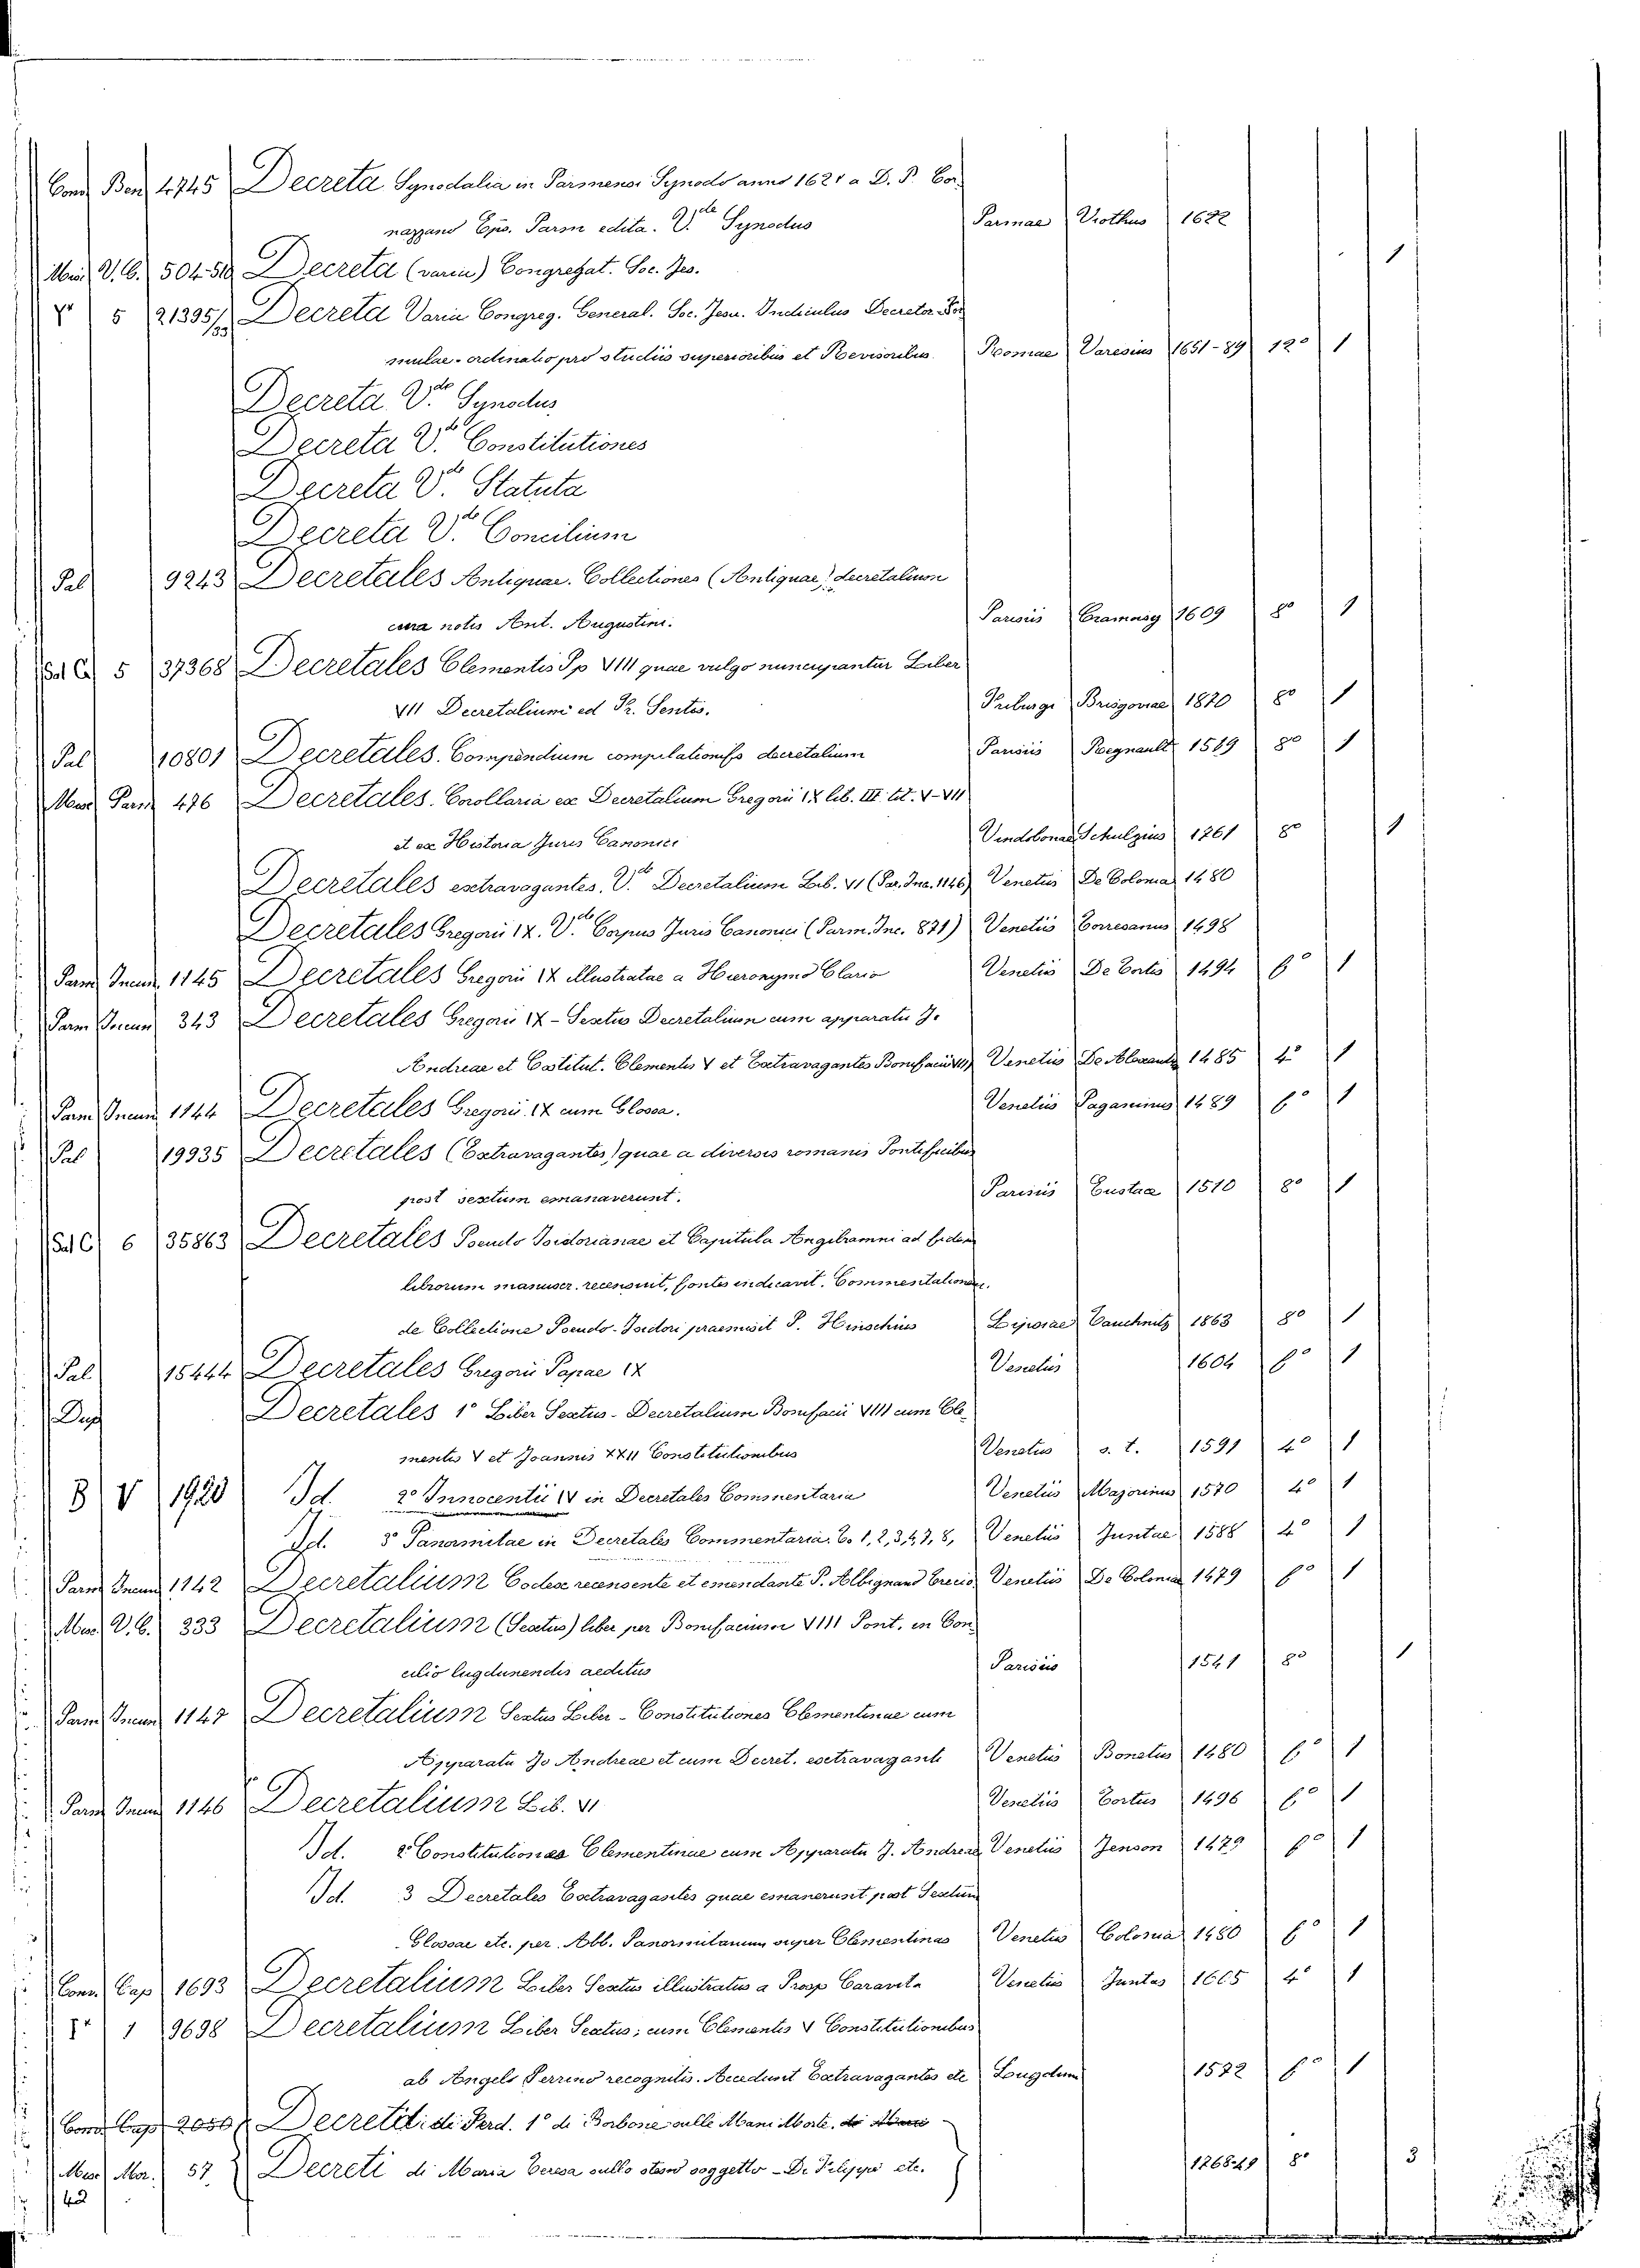 Conv. Ben. 4745 Decreta Synodalia in Parmensi Synodo anno 1621 a D. P. Cor
nazzano Eps. Parm edita. V.de Synodus Parmae Viothus 1622
Misc V. C. 504. Decreta (varia) Congregat. Soc. Jes. 1
5 21395 Decreta Varia Congreg. General. Soc. Jesu. Decretor. For
mulae - ordinatio pro studiis superioribus et Revisoribus Romae Varesius 1651-89 12° 1
Decreta V.de Synodus
Decreta V.de Constitutiones
Decreta V.de Statuta
Decreta V.de Concilium
Pal 9243 Decretales Antiquae. Collectiones (Antiquae) decretalium
cura notis Ant. Augustini. Parisiis Cramoisy 1609 8° 1
Sal C 5 37368 Decretales Clementis Pp VIII quae vulgo nuncupantur Liber
VII Decretalium ed Fr. Sentis. Friburgi Brisgoviae 1870 8° 1
Pal 10801 Decretales. Compendium compilationis decretalium Parisiis Regnault 1519 8° 1
Misc Parm 476 Decretales. Corollaria ex Decretalium Gregorii IX lib. III tit. V-VII
et ex Historia Juris Canonici Vindobonae Schulzius 1761 8° 1
Decretales extravagantes. V.de Decretalium Lib. VI (Par. Inc. 1146) Venetiis De Colonia 1480
Decretales Gregorii IX. V.de Corpus Juris Canonici (Parm. Inc. 871) Venetiis Torresanus 1498
Parm Incun. 1145 Decretales Gregorii IX illustratae a Hieronymo Clario Venetiis De Tortis 1494 6° 1
Parm Incun 343 Decretales Gregorii IX - Sextus Decretalium cum apparatu J.
Andreae et Costitut. Clementis V et Extravagantes Bonifacii VIII Venetiis De 1485 4° 1
Parm Incun 1144 Decretales Gregorii IX cum Glossa. Venetiis Paganinus 1489 6° 1
Pal 19935 Decretales (Extravagantes) quae a diversis romanis Pontificibus
post sextum emanaverunt. Parisiis Eustace 1510 8° 1
Sal C 6 35863 Decretales Pseudo Isidorianae et Capitula Angilramni ad fidem
librorum manuscr. recensuit, fontes indicavit. Commentationem
de Collectione Pseudo-Isidori praemisit P. Hinschius Lipsiae Tauchnitz 1863 8° 1
Pal 15444 Decretales Gregorii Papae IX Venetiis 1604 6° 1
Dup Decretales 1° Liber Sextus - Decretalium Bonifacii VIII cum Cle
mentis V et Joannis XXII Constitutionibus Venetiis s. t. 1591 4° 1
B V 1920 Id. 2° Innocentii IV in Decretales Commentaria Venetiis Majorinus 1570 4° 1
Id. 3° Panormitae in Decretales Commentaria. T. 1, 2, 3, 4, 7, 8, Venetiis Juntae 1588 4° 1
Parm Incun 1142 Decretalium Codex recensente et emendante P. Albignano Trecio Venetiis De Colonia 1479 6° 1
Misc. V. C. 333 Decretalium (Sextus) liber per Bonifacium VIII Pont. in Con
cilio lugdunensis aeditus Parisiis 1541 8° 1
Parm Incun 1147 Decretalium Sextus Liber - Constitutiones Clementinae cum
Apparatu Jo Andreae et cum Decret. extravaganti Venetiis Bonetus 1480 6° 1
Parm Incun 1146 Decretalium Lib. VI Venetiis Tortus 1496 6° 1
Id. 2° Constitutiones Clementinae cum Apparatu J. Andreae Venetiis Jenson 1479 6° 1
Id. 3 Decretales Extravagantes quae emanerunt post Sextum
Glossae etc. per. Abb. Panormitanum super Clementinas Venetiis Colonia 1480 6° 1
Conv. Cap 1693 Decretalium Liber Sextus illustratus a Prosp Caravita Venetiis Juntas 1605 4° 1
1 9698 Decretalium Liber Sextus; cum Clementis V Constitutionibus
ab Angelo Perrino recognitis. Accedunt Extravagantes etc Lougdum 1572 6° 1
Conv. Cap 2050 Decreti di Ferd. 1° di Borbone sulle Mani Morte.
Misc Mor. 57 Decreti di Maria Teresa sullo stesso soggetto - Di Filippo etc. 1768-49 8° 3
42